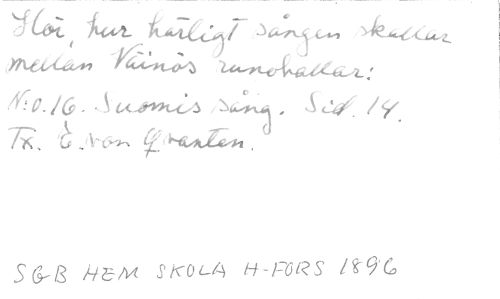 Hör, hur härligt sången skallar
mellan Väinös runohallar:
N:o.16. Suomis sång. Sid. 14.
Tx. E. von Qvanten.
SGB HEM SKOLA H-FORS 1896